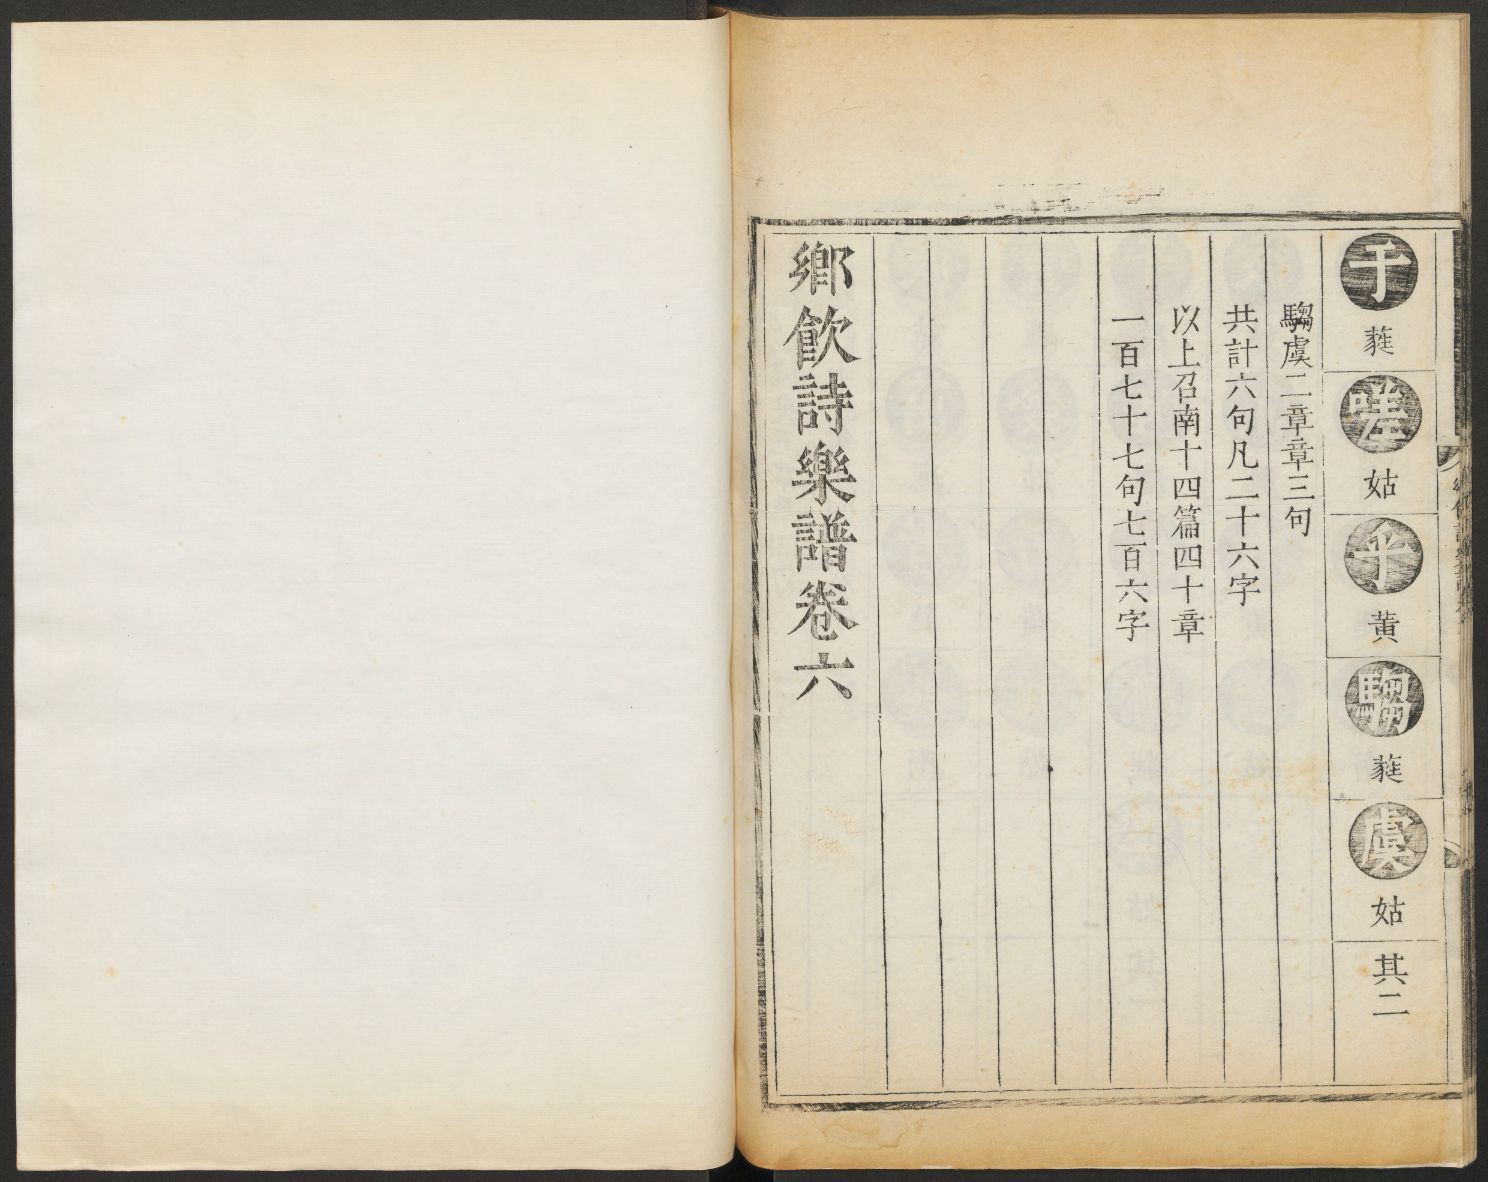 于蕤嗟姑乎黃騶蕤虞姑其二
騶虞二章章三句
共計六句凡二十六字
以上召南十四篇四十章
一百七十七句七百六字
鄉飲詩樂譜卷六